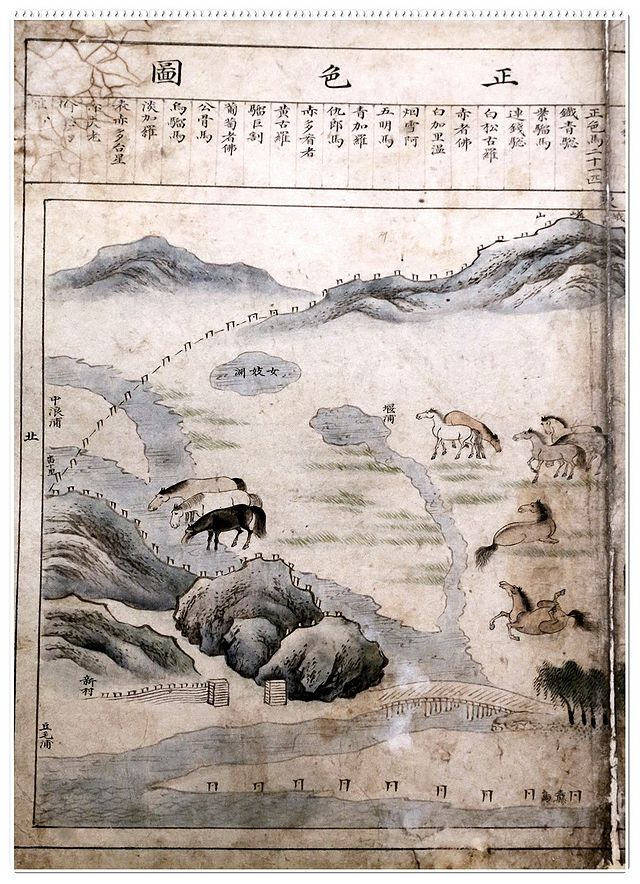 正色圖
正色馬二十一匹
鐵青驄
葉騮馬
連錢驄
白松古羅
赤者佛
白加里溫
烟雪阿
五明馬
青加羅
仇郎馬
赤多看者
黃古羅
騮巨割
葡萄者佛
公骨馬
烏騮馬
淡加羅
表赤多台星
峨嵯山
女妓淵
堰浦
中浪浦
北
新村
豆毛浦
纛島